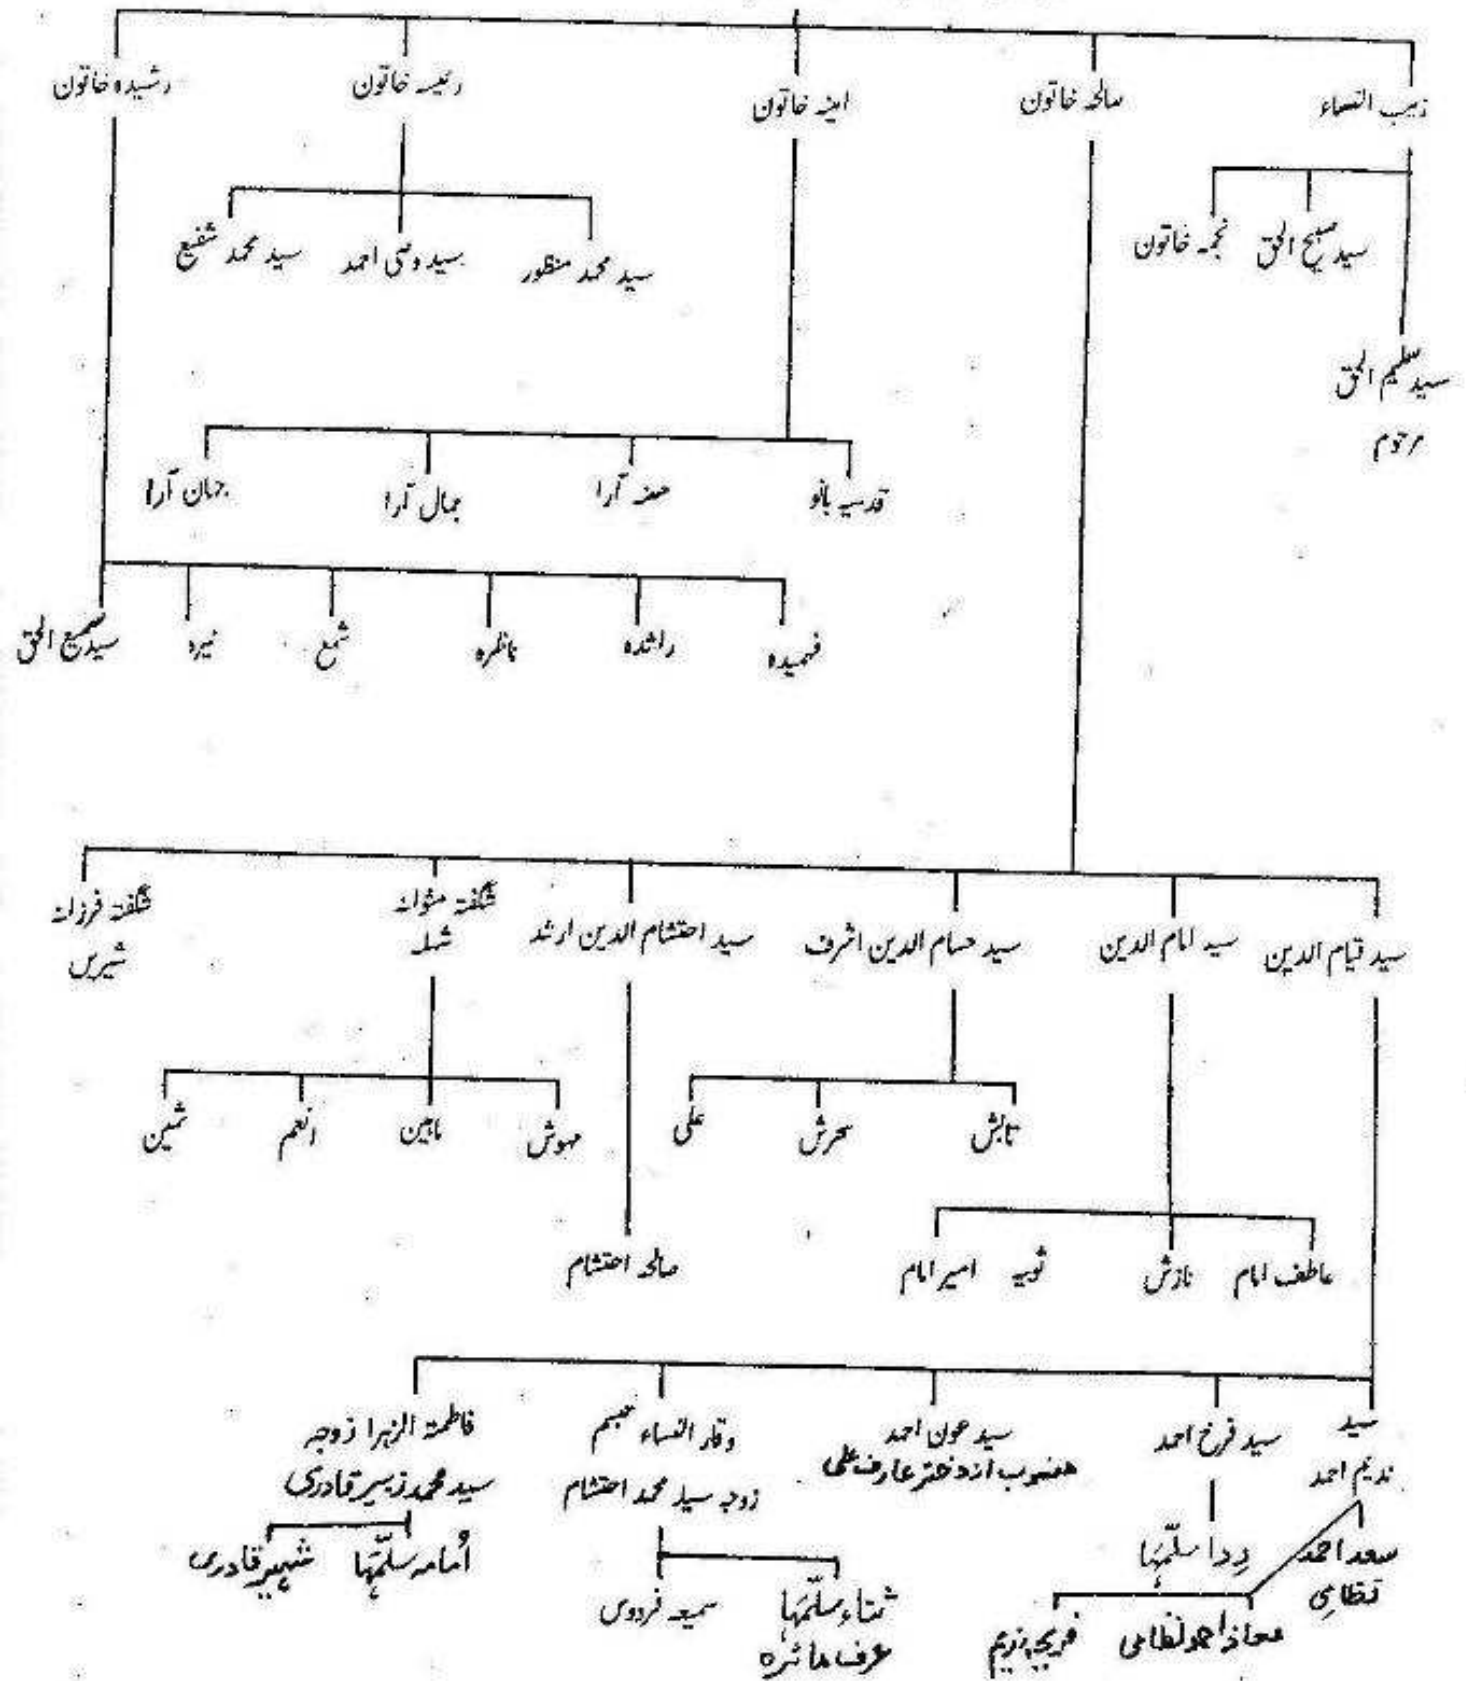 زیب النساء
صالحہ خاتون
امینہ خاتون
رئیسہ خاتون
رشیدہ خاتون
نجمہ خاتون
سید محمد منظور
سید وصی احمد
سید محمد شفیع
مرحوم
قدسیہ بانو
جمال آرا
جہاں آرا
فہمیدہ
راشدہ
ناظرہ
شمع
نیرہ
سید سمیع الحق
سید قیام الدین
سید امام الدین
سید حسام الدین اشرف
سید احتشام الدین ارشد
شگفتہ
شگفتہ فرزانہ
شیریں
تابش
سحرش
علی
مہوش
ماہین
انعم
ثمین
عاطف امام
نازش
ثوبیہ
امیر امام
صالحہ احتشام
سید
ندیم احمد
سید فرخ احمد
سید عون احمد
منسوب از دختر عارف علی
وقار النساء
زوجہ سید محمد احتشام
فاطمۃ الزہرا زوجہ
سید محمد زبیر قادری
سعد احمد
نظامی
ردا سلّمہا
معاذ احمد نظامی
ثناء سلّمہا
عرف مائرہ
سمیعہ فردوس
اُمامہ سلّمہا
شہیر قادری